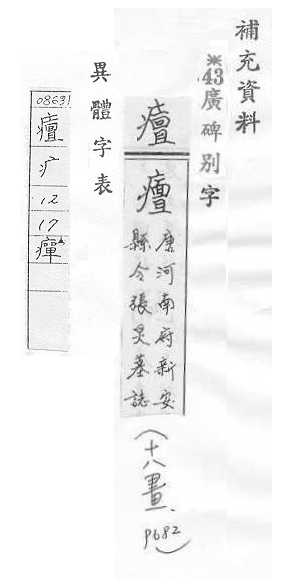 補充資料
※43廣碑别字
癉
唐河南府新安
縣令張炅墓誌
（十八畫、
P682）
異體字表
08631
疒
12
17
癉